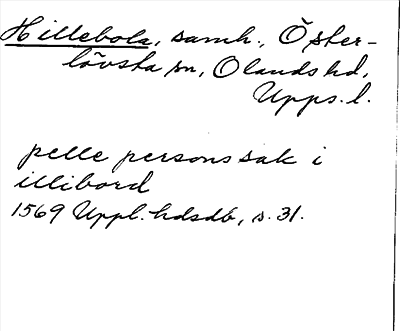 Hillebola, samh., Öster-
lövsta sn, Olands hd,
Upps. l.
pelle persons sak i
illibord
1569 Uppl. hdsdb, s. 31.